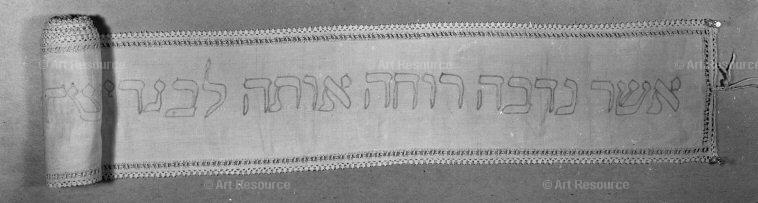 © Art Resource © Art Resource © Art Resource © Art Resource
אשר נדבה רוחה אותה
© Art Resource © Art Resource